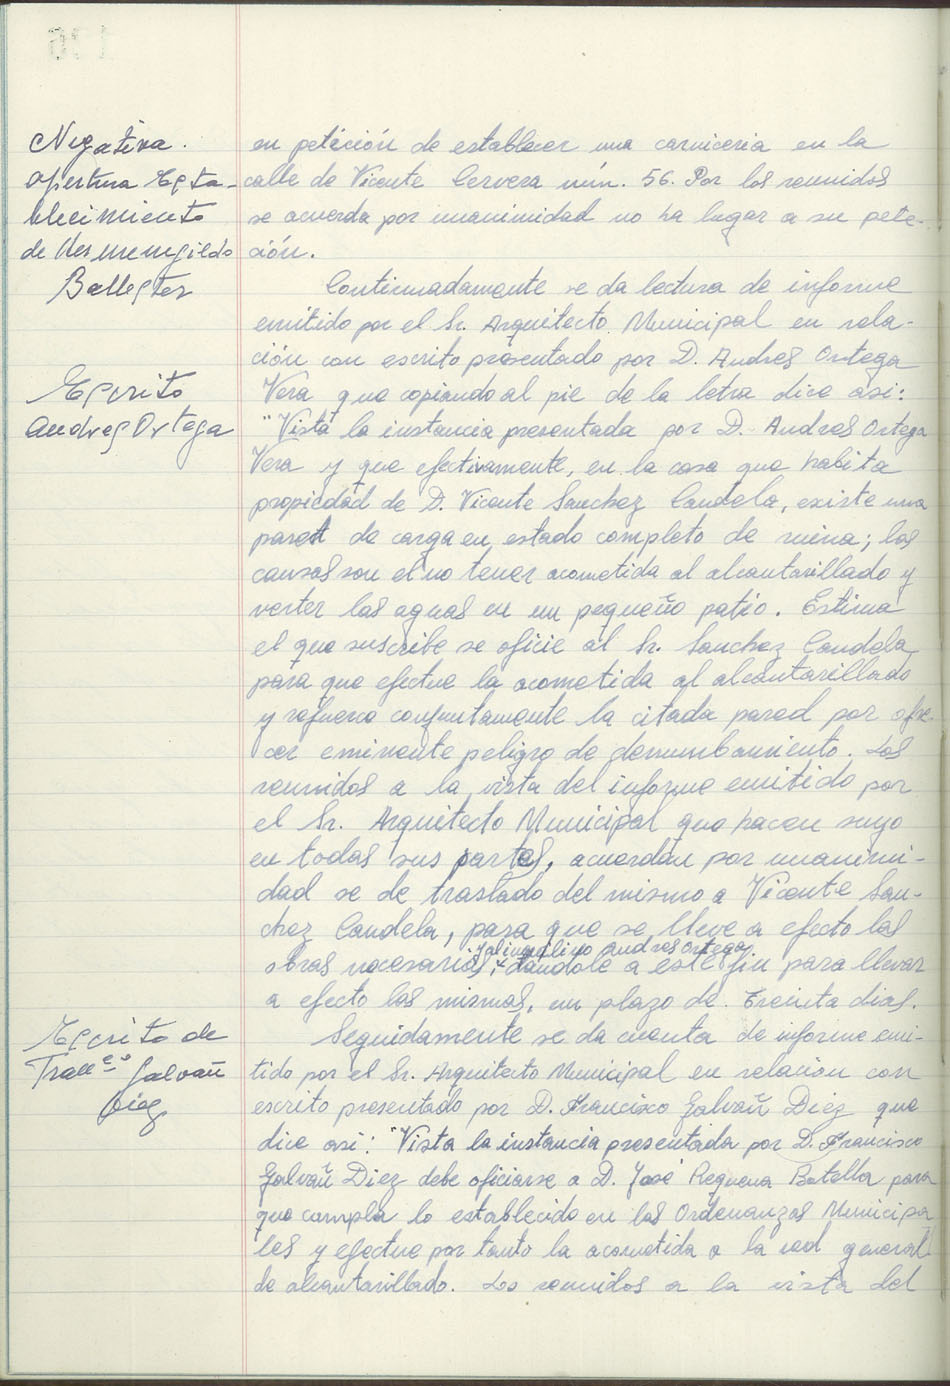 Negativa.
apertura Esta-
blecimiento
de Hermenegildo
Ballester
en petición de establecer una carniceria en la
calle de Vicente Cervera núm. 56. Por los reunidos
se acuerda por unanimidad no ha lugar a su peti-
ción.
Continuadamente se da lectura de informe
emitido por el Sr. Arquitecto Municipal en rela-
ción con escrito presentado por D. Andres Ortega
Escrito
Andres Ortega
Vera que copiando al pie de la letra dice asi:
"Vista la instancia presentada por D. Andres Ortega
Vera y que efectivamente, en la casa que habita
propiedad de D. Vicente Sanchez Candela, existe una
pared de carga en estado completo de ruina; las
causas son el no tener acometida al alcantarillado y
verter las aguas en un pequeño patio. Estima
el que suscribe se oficie al Sr. Sanchez Candela
para que efectue la acometida al alcantarillado
y refuerce conjuntamente la citada pared por ofre-
cer eminente peligro de derrumbamiento. Los
reunidos a la vista del informe emitido por
el Sr. Arquitecto Municipal que hacen suyo
en todas sus partes, acuerdan por unanimi-
dad se de traslado del mismo a Vicente San-
chez Candela, para que se lleve a efecto las
y al inquilino Andres Ortega
obras necesarias, dandole a este fin para llevar
a efecto las mismas, un plazo de treinta dias.
Escrito de
Franco Galvañ
Diez
Seguidamente se da cuenta de informe emi-
tido por el Sr. Arquitecto Municipal en relacion con
escrito presentado por D. Francisco Galvañ Diez que
dice asi: "Vista la instancia presentada por D. Francisco
Galvañ Diez debe oficiarse a D. José Requena Botella para
que cumpla lo establecido en las Ordenanzas Municipa
les y efectue por tanto la acometida a la red general
de alcantarillado. Los reunidos a la vista del